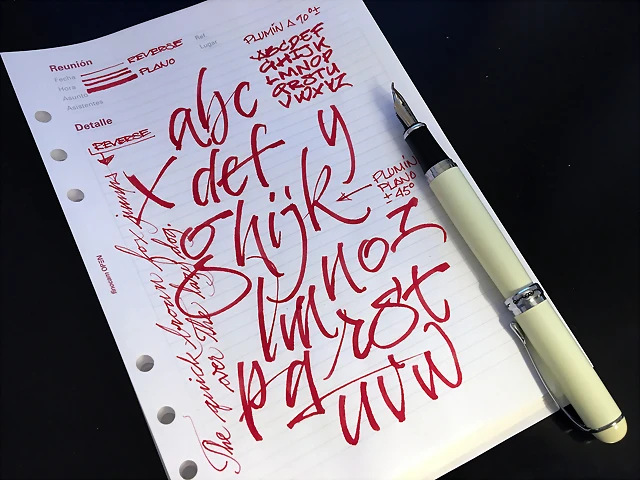 Reunión
REVERSE
Ref
Lugar
Fecha
Hora
PLANO
Asunto
Asistentes
PLUMIN ∆ 90°±
ABCDEF
GHIJK
LMNOP
QRSTU
VWXYZ
Detalle
REVERSE
abc
def
ghijk
lmnoz
pqrst
uvw
x
y
PLUMÍN
PLANO
+45°
The quick brown fox jumps
over the lazy dog.